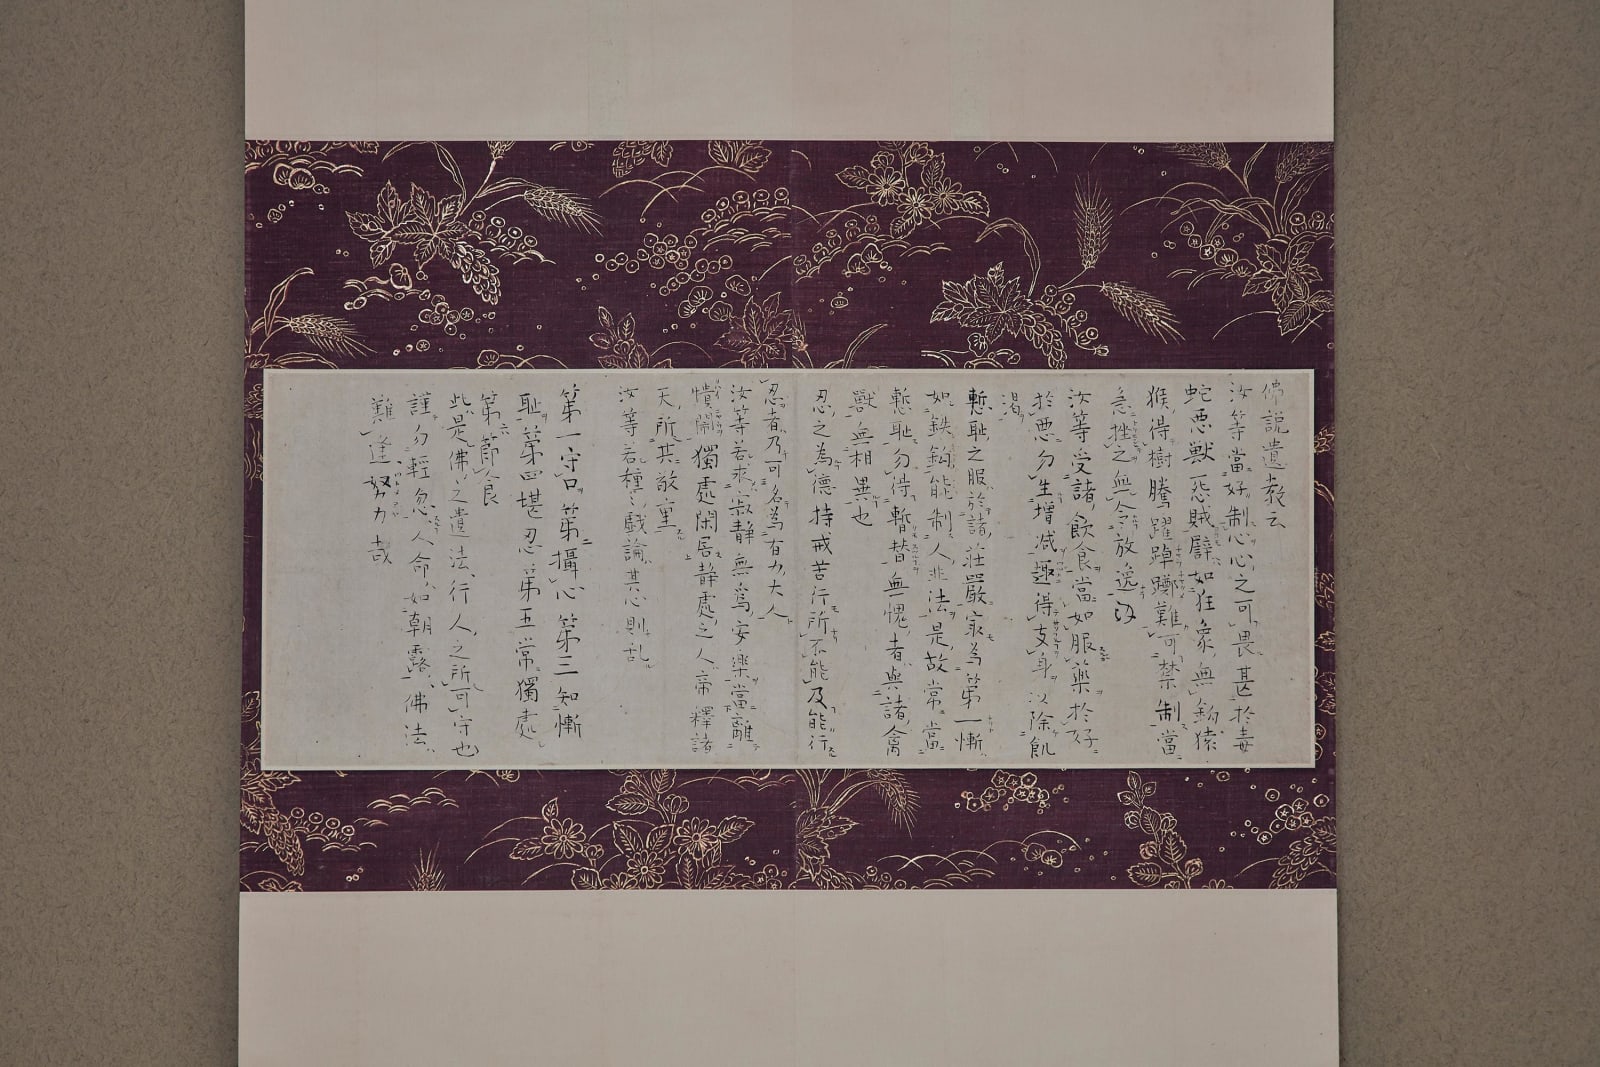 佛説遺教云
汝等當好制心心之可畏甚於毒
蛇悪獣怨賊譬如狂象無鈎猿
猴得樹騰躍踔躑難可禁制當
急挫之無令放逸
汝等受諸飲食當如服藥於好
於悪勿生増減趣得支身以除飢
渇
慙耻之服於諸荘嚴冣為第一慚
如鉄鈎能制人非法是故常當
慙耻勿得暫替無愧者與諸禽
獣無相異也
忍之為徳持戒苦行所不能及能行
忍者乃可名為有力大人
汝等若求寂静無為安楽當離
憒閙獨處閑居静處之人帝釋諸
天所共敬重
汝等若種〻戯論其心則乱
第一守口第二攝心第三知慚
耻第四堪忍第五常獨處
第六節食
此是佛之遺法行人之所可守也
謹勿軽忽人命如朝露佛法
難逢努力哉